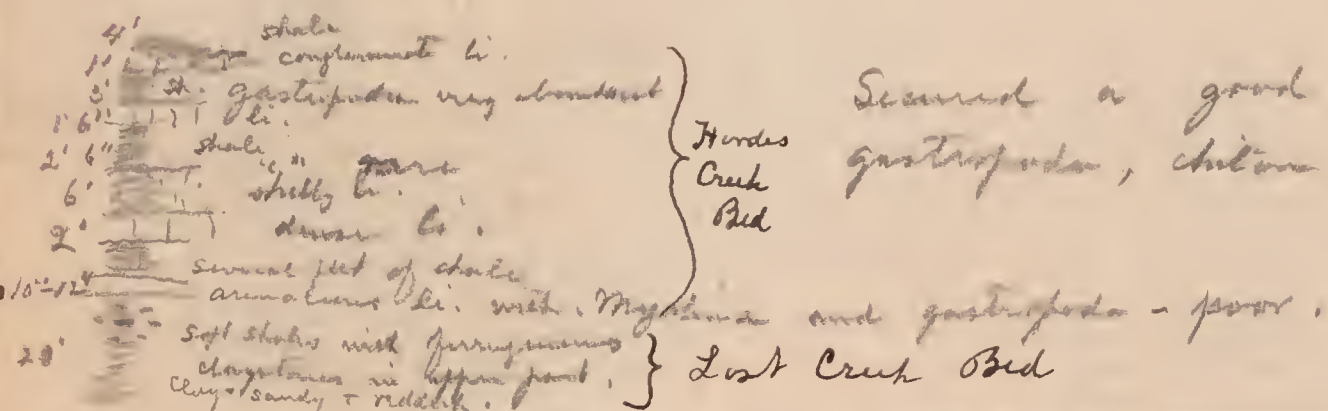 4' shale
1' conglomerate li.
3' sh. gastropoda very abundant
1' 6" li.
2' 6" shale "c"
6' shelly li.
2' dense li.
several feet of shale
10"-12" arenaceous li. with Myalina and gastropoda - poor.
28' soft shales with ferrugineous
claystones in upper part.
Clay sandy + reddish.
Hordes
Creek
Bed
Lost Creek Bed
Secured a good
gastropoda, chiton